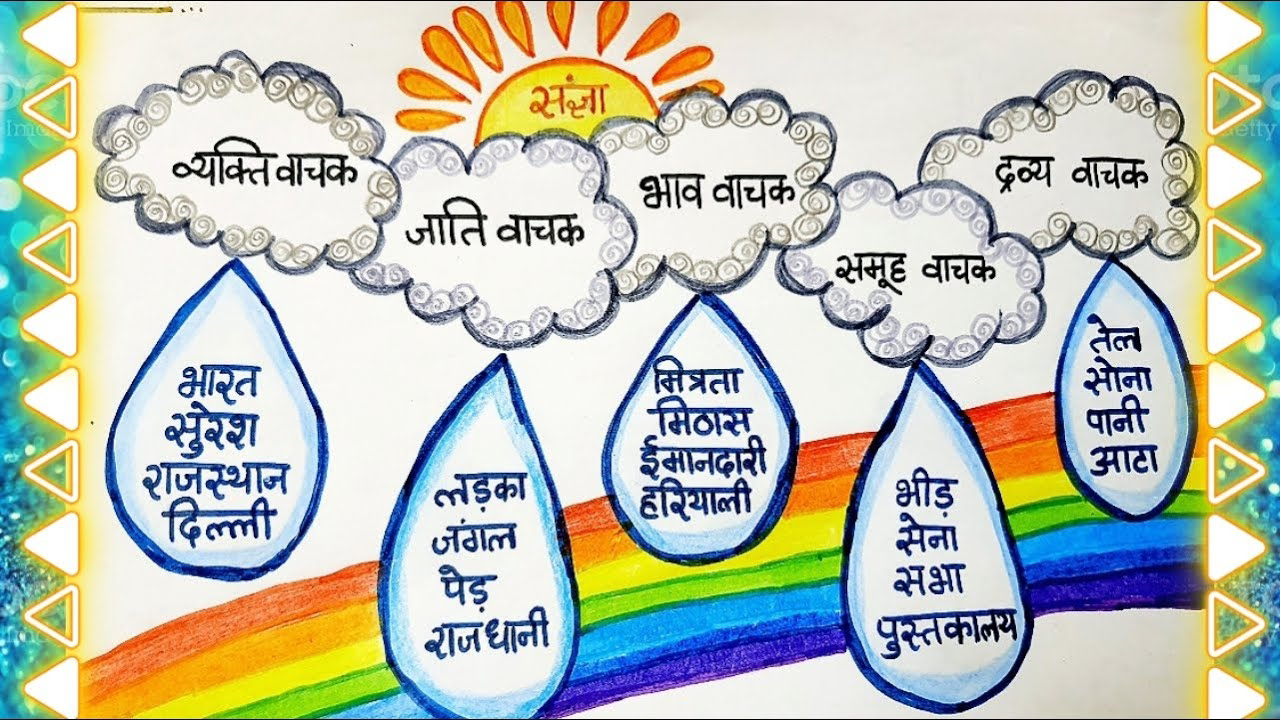 संज्ञा
व्यक्ति वाचक
जाति वाचक
भाव वाचक
समूह वाचक
द्रव्य वाचक
भारत
सुरेश
राजस्थान
दिल्ली
लड़का
जंगल
पेड़
राजधानी
मित्रता
मिठास
ईमानदारी
हरियाली
भीड़
सेना
सभा
पुस्तकालय
तेल
सोना
पानी
आटा